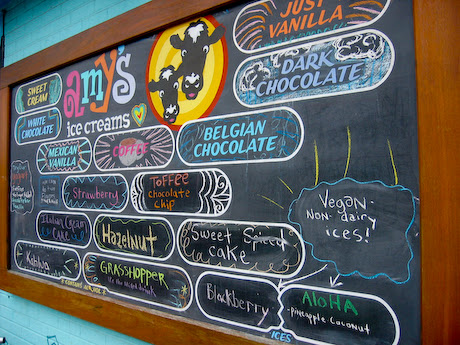 JUST
VANILLA
SWEET
CREAM
amy's
ice creams
DARK
CHOCOLATE
WHITE
CHOCOLATE
MEXICAN
VANILLA
COFFEE
BELGIAN
CHOCOLATE
Strawberry
TOFFEE
chocolate
CHIP
Vegan-
Non-dairy
ices!
CAKE
Hazelnut
Sweet Spiced
cake
GRASSHOPPER
Blackberry
ALOHA
-Pineapple Coconut
ICES